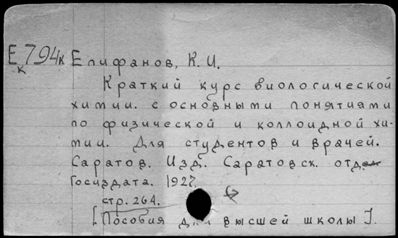 Ек794к Епифанов, К. И.
Краткий курс биологической
химии. с основными понятиями
по физической и коллоидной хи-
мии. Для студентов и врачей.
Саратов. Изд. Саратовск. отдел
Госиздата. 1927.
стр. 264.
[Пособия для высшей школы].